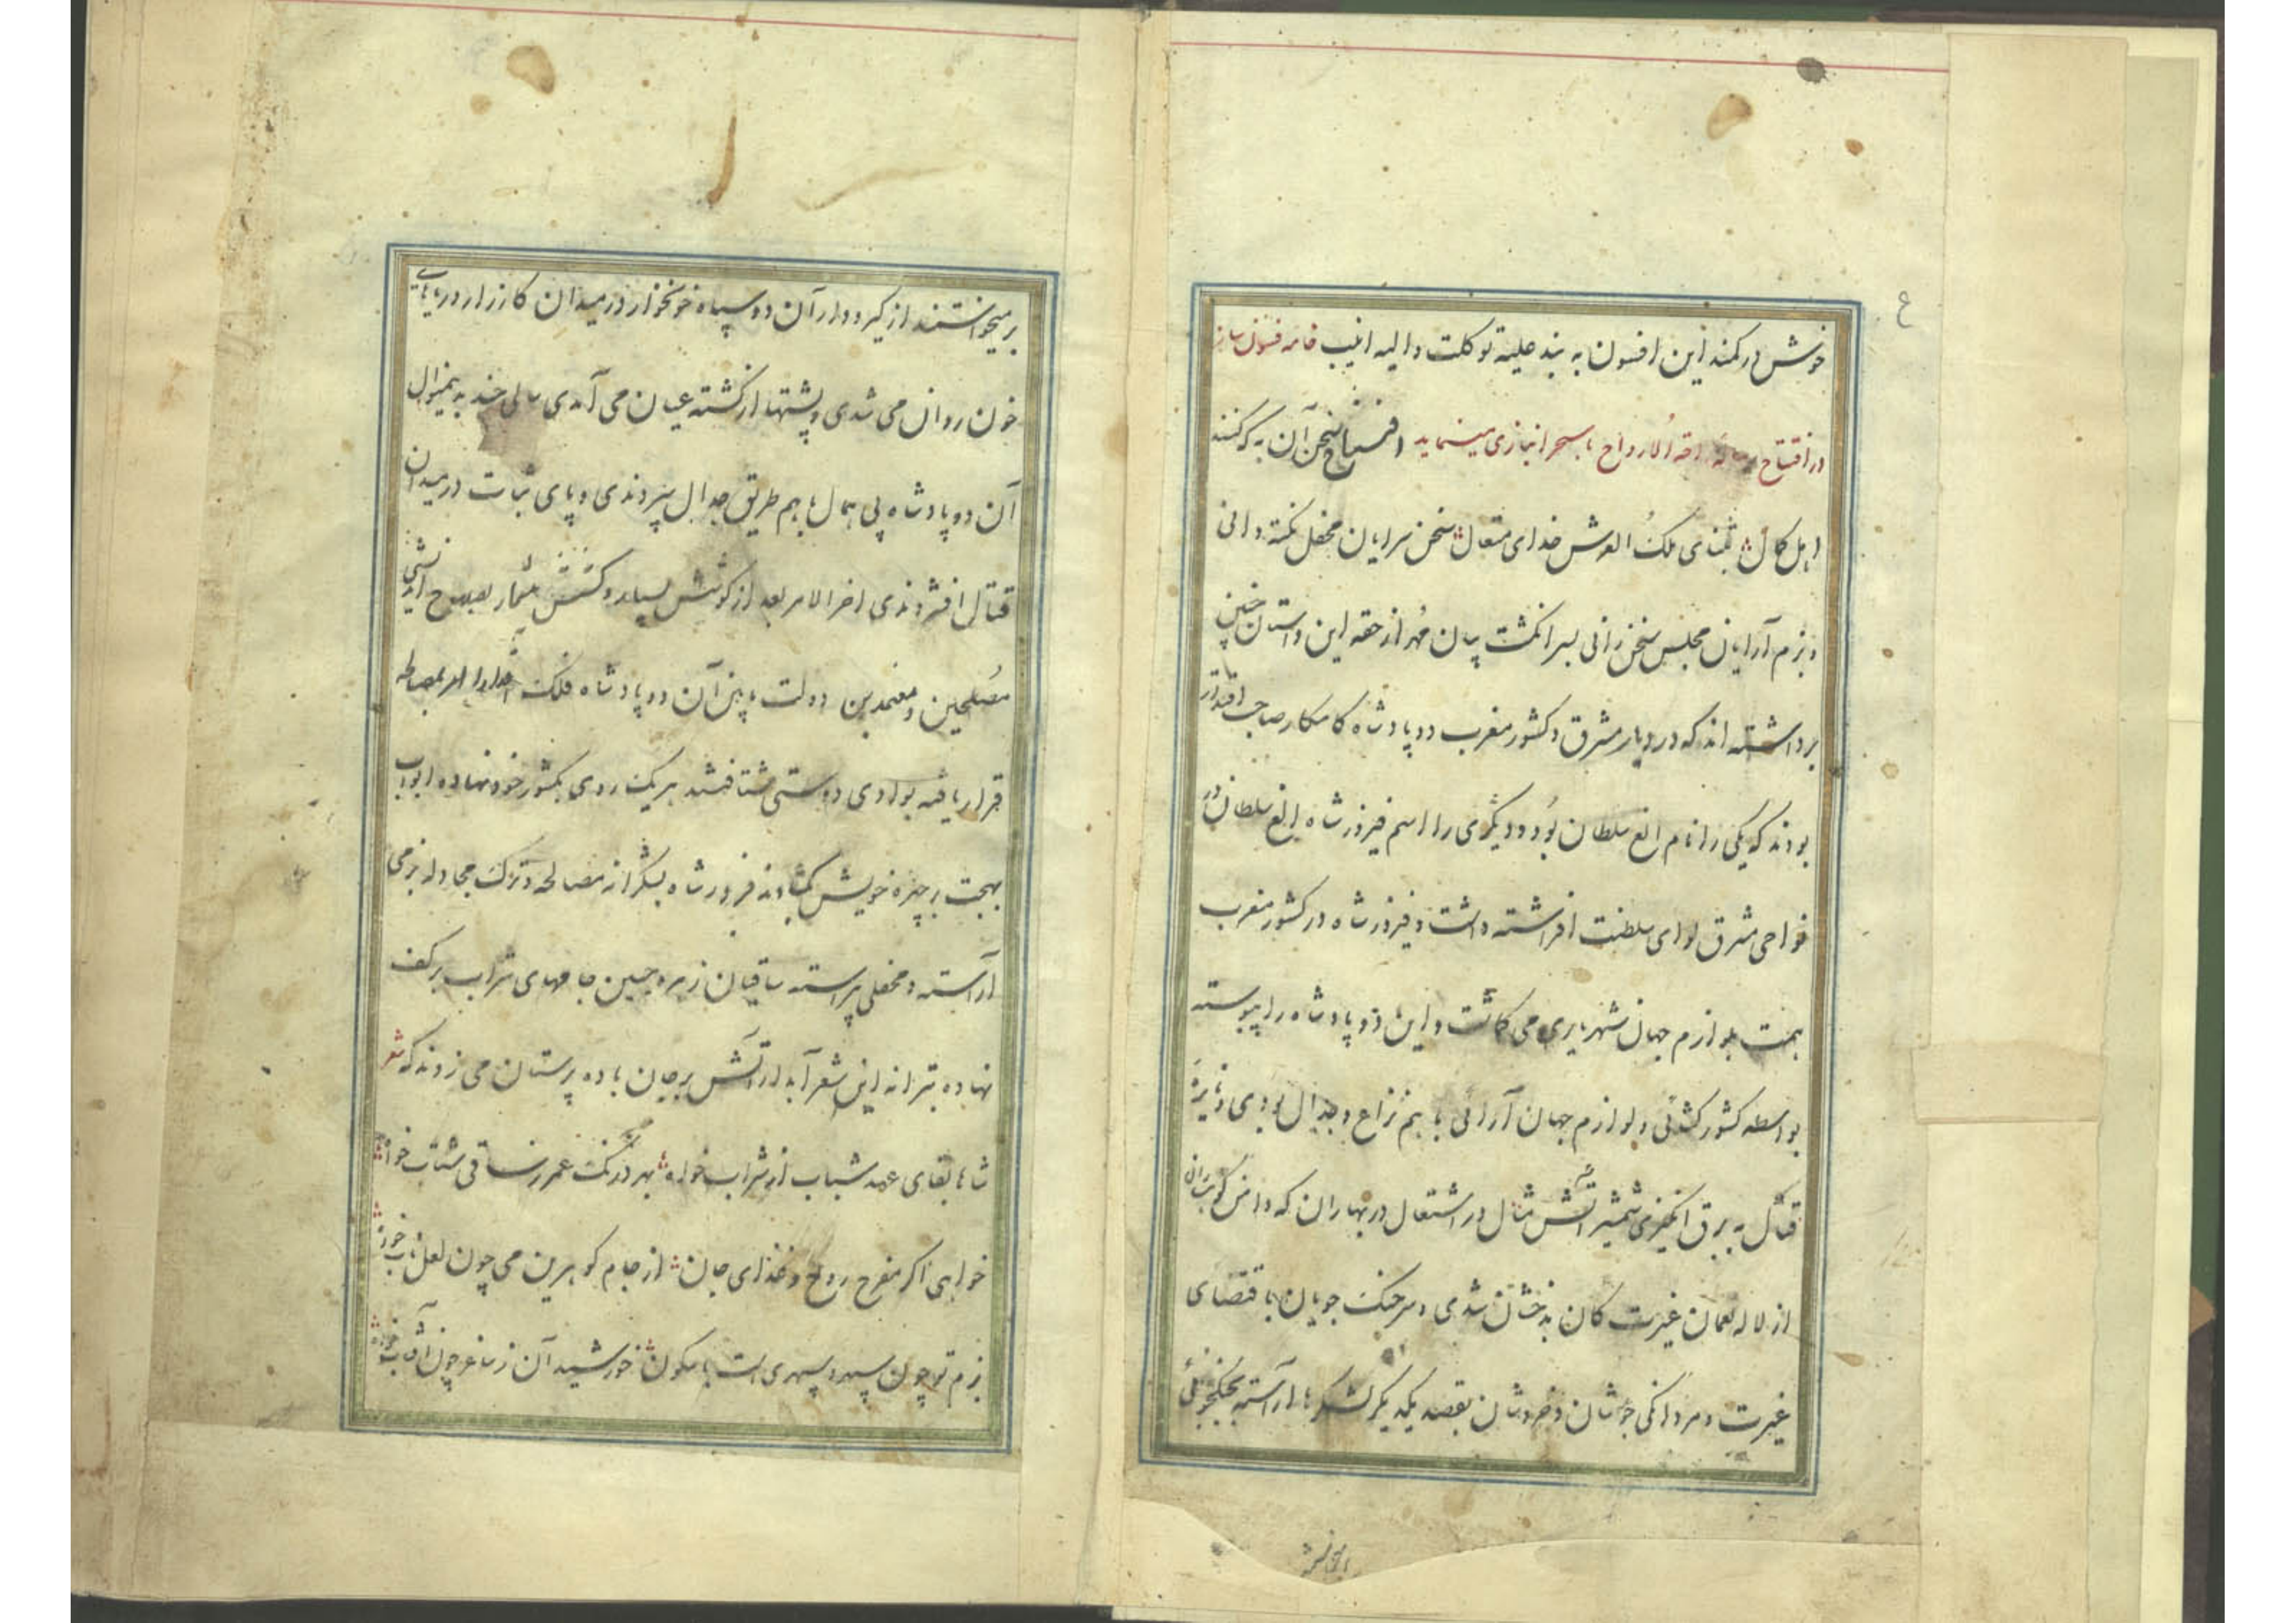 خوش در کمند این افسون به بند علیه توکلت والیه انیب خامه فسون ساز
در افتتاح راحة الارواح با سحر انبازی مینماید افتتاح سخن آن به که کنند
اهل کمال بثنای ملک العرش خدای متعال سخن سرایان محفل نکته دانی
و بزم آرایان مجلس سخن رانی بسر انکشت بیان مُهر از حقه این داستان چنین
برداشته اند که در دیار مشرق و کشور مغرب دو پادشاه کامکار صاحب اقتدار
بودند که یکی را نام الغ سلطان بُود و دیگری را اسم فیروز شاه الغ سلطان در
نواحی مشرق لوای سلطنت افراشته داشت و فیروز شاه در کشور مغرب
همت بلوازم جهان شهریاری می کماشت و این دو پادشاه را پیوسته
بواسطه کشور کشائی و لوازم جهان آرائی با هم نزاع و جدال بودی و نایره
قتال به برق انکیزی شمشیر آتش مثال در اشتعال در بهاران که دامن کوهساران
از لاله نعمان غیرت کان بدخشان شدی و سر جنک جویان باقتضای
غیرت و مردانکی جوشان و خروشان بقصد یکدیکر لشکرها آراسته بجنکجوئی
بر میخواستند از کیر و دار آن دو سپاه خونخوار در میدان کارزار دریاهای
خون روان می شدی و پشتها از کشته عیان می آمدی سالی چند به نیمنوال
آن دو پادشاه بی همال با هم طریق جدال سپردندی و پای ثبات در میدان
قتال افشردندی اخر الامر بعد از کوشش بسیار و کشش بیشمار بصلاح اندیشی
مُصلحین و معتمدین دولت مابین آن دو پادشاه فلک اقتدار امر بمصالحه
قرار یافته بوادی دوستی شتافتند هر یک روی بکشور خود نهاده ابواب
بهجت بر چهره خویش کشادند فیروز شاه بشکرانه مصالحه و ترک مجادله بزمی
آراسته و محفلی پیراسته ساقیان زهره جبین جامهای شراب بر کف
نهاده بترانه این شعر آبدار آتش بر جان باده پرستان می زدند که شعر
شاها بقای عهد شباب از شراب خواه بهر درنک عمر ز ساقی شتاب خواه
خواهی اکر مفرح روح و غذای جان از جام کوهرین می چون لعل ناب خواه
بزم تو چون سپهر و سپهری است با سکون خورشید آن ز ساغر چون آفتاب خواه